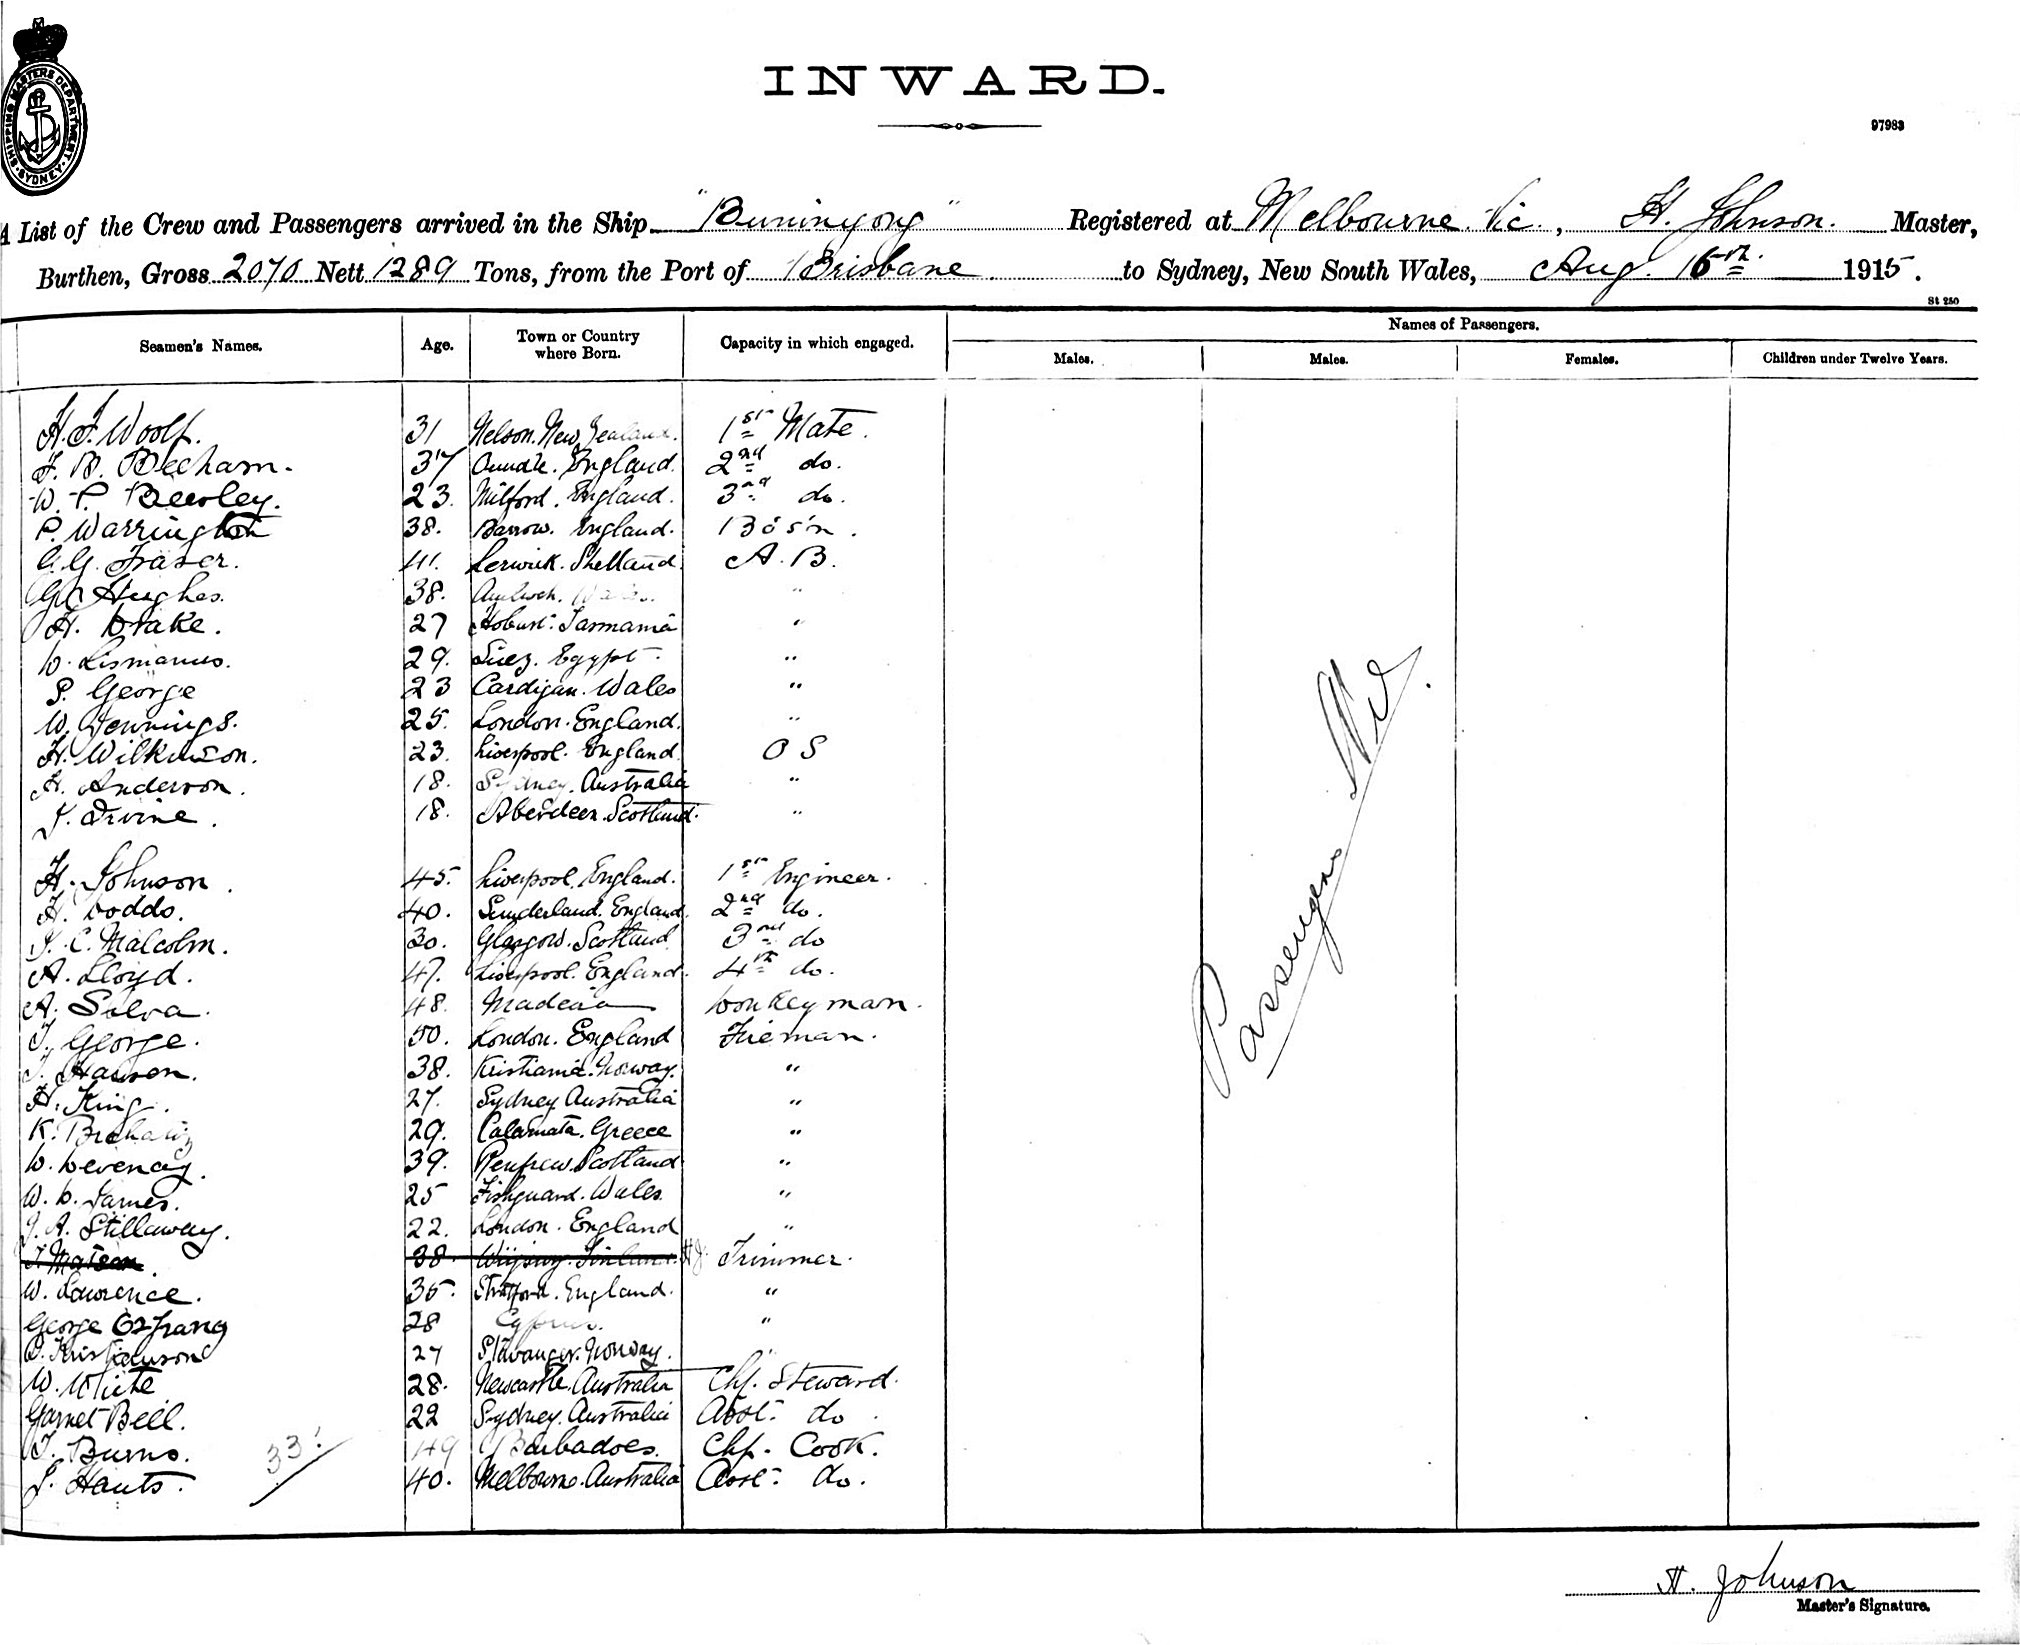 SHIPPING MASTERS DEPARTMENT. SYDNEY
INWARD.
97983
A List of the Crew and Passengers arrived in the Ship "Buninyong" Registered at Melbourne Vic., H. Johnson. Master,
Burthen, Gross 2070 Nett 1289 Tons, from the Port of Brisbane to Sydney, New South Wales, Aug. 16th 1915.
St 250
Seamen's Names. Age. Town or Country where Born. Capacity in which engaged. Names of Passengers.
Males. Males. Females. Children under Twelve Years.
H. F. Woolf. 31 Nelson. New Zealand. 1st Mate.
F. B. Becham. 37 England. 2nd do.
W. P. Beesley. 23. Milford. England. 3rd do.
P. Warrington 38. Barrow. England. Bosn.
G. Fraser. 41. Lerwick. Shetland. A. B.
Hughes. 38. Amlwch. Wales. "
H. Drake. 27 Hobart. Tasmania "
D. Lismanus. 29. Suez. Egypt. "
P. George 23 Cardigan. Wales "
W. Jennings. 25. London. England. "
H. Wilkinson. 23. Liverpool. England O S
H. Anderson. 18. Sydney. Australia "
J. Irvine. 18. Aberdeen. Scotland. "
H. Johnson. 45. Liverpool. England. 1st Engineer.
H. Dodds. 40. Sunderland. England. 2nd do.
J. C. Malcolm. 30. Glasgow. Scotland 3rd do
A. Lloyd. 47. Liverpool. England. 4th do.
A. Silva. 48. Madeira Donkeyman.
T. George. 50. London. England Fireman.
Hansen. 38. Kristiania. Norway. "
H. King. 27. Sydney Australia "
K. 29. Calamata. Greece "
D. Devenay. 39. Renfrew. Scotland "
W. D. James. 25 Fishguard. Wales. "
J. A. Stillaway. 22. London. England "
Matson. 38. Finland. H J. Trimmer.
W. Lawrence. 35. Stratford. England. "
George 28 Cyprus. "
Kristianson 27 Stavanger. Norway. "
W. White 28. Newcastle. Australia Chf. Steward.
Garnet Bell. 22 Sydney. Australia Asst. do.
T. Burns. 49 Barbadoes. Chf. Cook.
S. Hants. 40. Melbourne. Australia Asst. do.
33
Passengers Nil.
H. Johnson
Master's Signature.